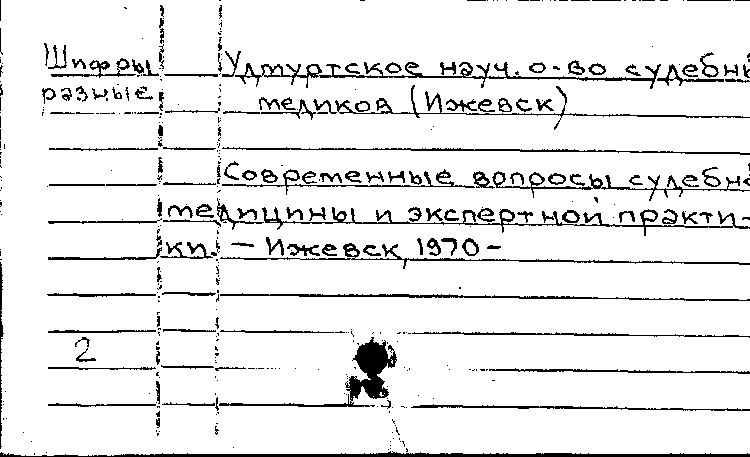 Шифры
разные
Удмуртское науч. о-во судебны
медиков (Ижевск)
Современные вопросы судебно
медицины и экспертной практи-
ки. — Ижевск, 1970 -
2